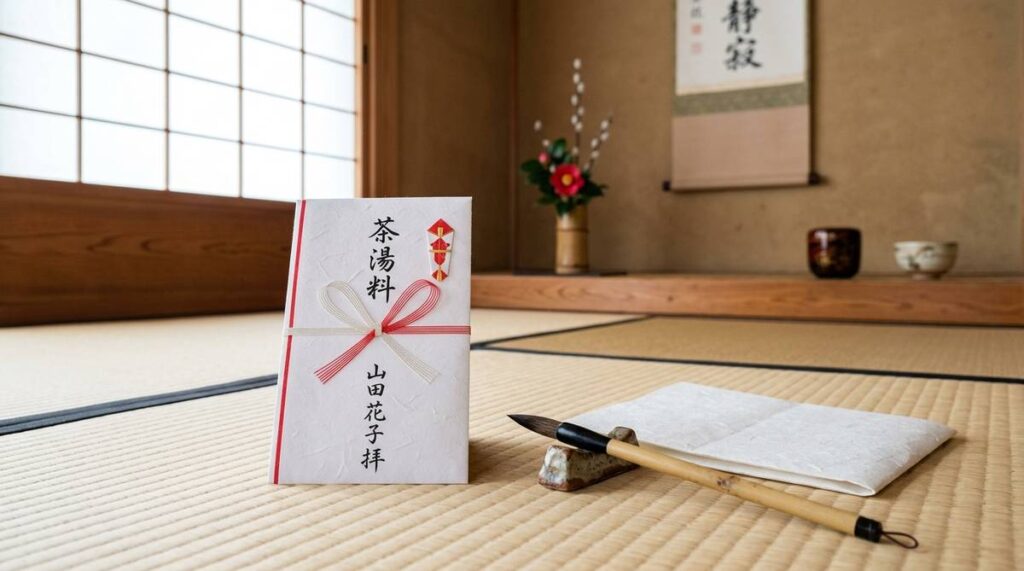 茶湯料
山田花子拝
静寂